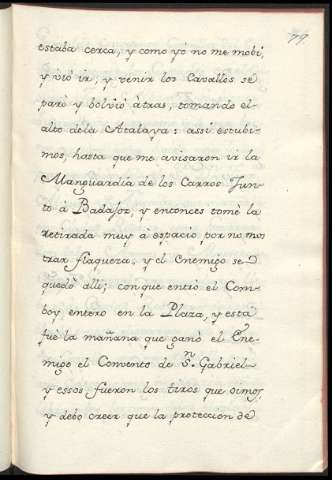 77
estaba cerca, y como yó no me mobi,
y vió ir, y venir los Cavallos se
paró y bolvió àtras, tomando el-
alto dela Atalaya: assi estubi-
mos, hasta que me avisaron ir la
Manguardia de los Carros Jun-
to à Badajoz, y entonces tomè la
retirada muy à espacio por no mos
trar flaqueza, y el Enemigo se
quedò alli; con que entrò el Com-
boy entero en la Plaza, y esta
fuè la mañana que ganò el Ene-
migo el Convento de Sn. Gabriel
y essos fueron los tiros que oimos,
y debo creer que la proteccion de